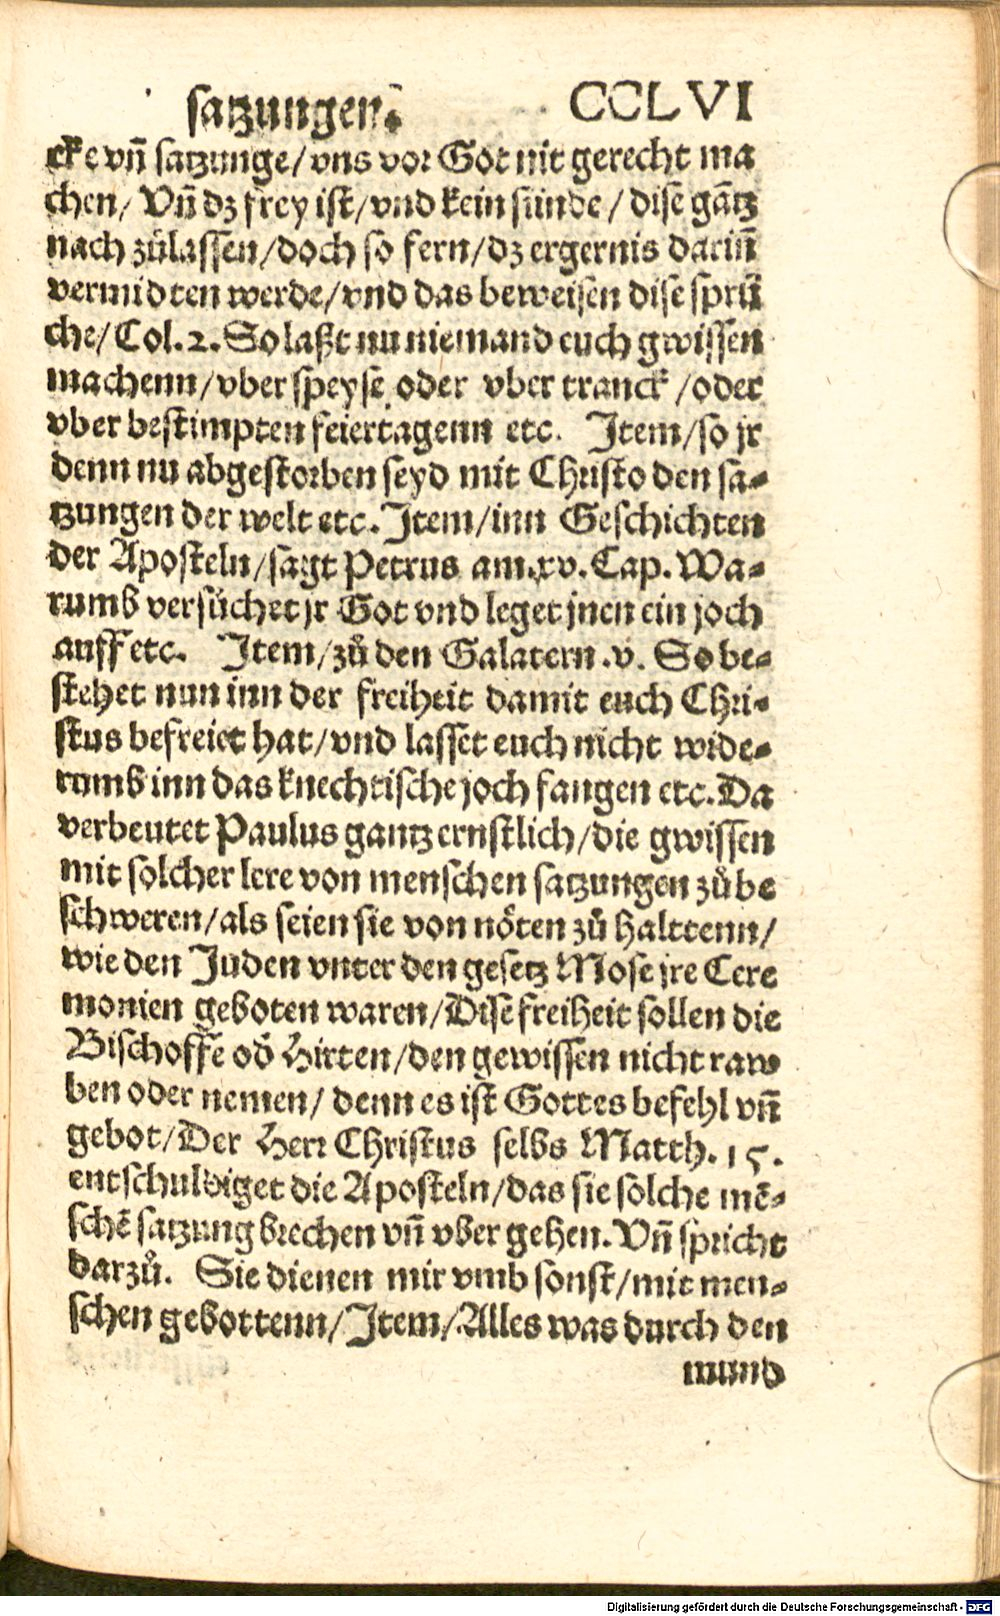 satzungen. CCLVI
cke vñ satzunge/vns vor Got nit gerecht ma
chen/ Vñ dz frey ist/vnd kein sünde/ dise gātz
nach zůlassen/doch so fern/dz ergernis dariñ
vermidten werde/vnd das beweisen dise sprü
che/Col.2.So laßt nu niemand euch gwissen
machenn/vber speyse oder vber tranck/oder
vber bestimpten feiertagenn etc. Item/so jr
denn nu abgestorben seyd mit Christo den sa-
tzungen der welt etc.Item/inn Geschichten
der Aposteln/sagt Petrus am.xv.Cap.Wa-
rumb versůchet jr Got vnd leget jnen ein joch
auff etc. Item/zů den Galatern.v. So be-
stehet nun inn der freiheit damit euch Chri-
stus befreiet hat/vnd lasset euch nicht wide-
rumb inn das knechtische joch fangen etc.Da
verbeutet Paulus gantz ernstlich/die gwissen
mit solcher lere von menschen satzungen zů be
schweren/als seien sie von nöten zů halttenn/
wie den Juden vnter den gesetz Mose jre Cere
monien geboten waren/Dise freiheit sollen die
Bischoffe od̄ Hirten/den gewissen nicht raw
ben oder nemen/ denn es ist Gottes befehl vñ
gebot/Der Herr Christus selbs Matth.15.
entschuldiget die Aposteln/das sie solche mē-
schē satzung brechen vñ vber gehen.Vñ spricht
darzů. Sie dienen mir vmb sonst/mit men-
schen gebottenn/Item/Alles was durch den
mund
Digitalisierung gefördert durch die Deutsche Forschungsgemeinschaft - DFG